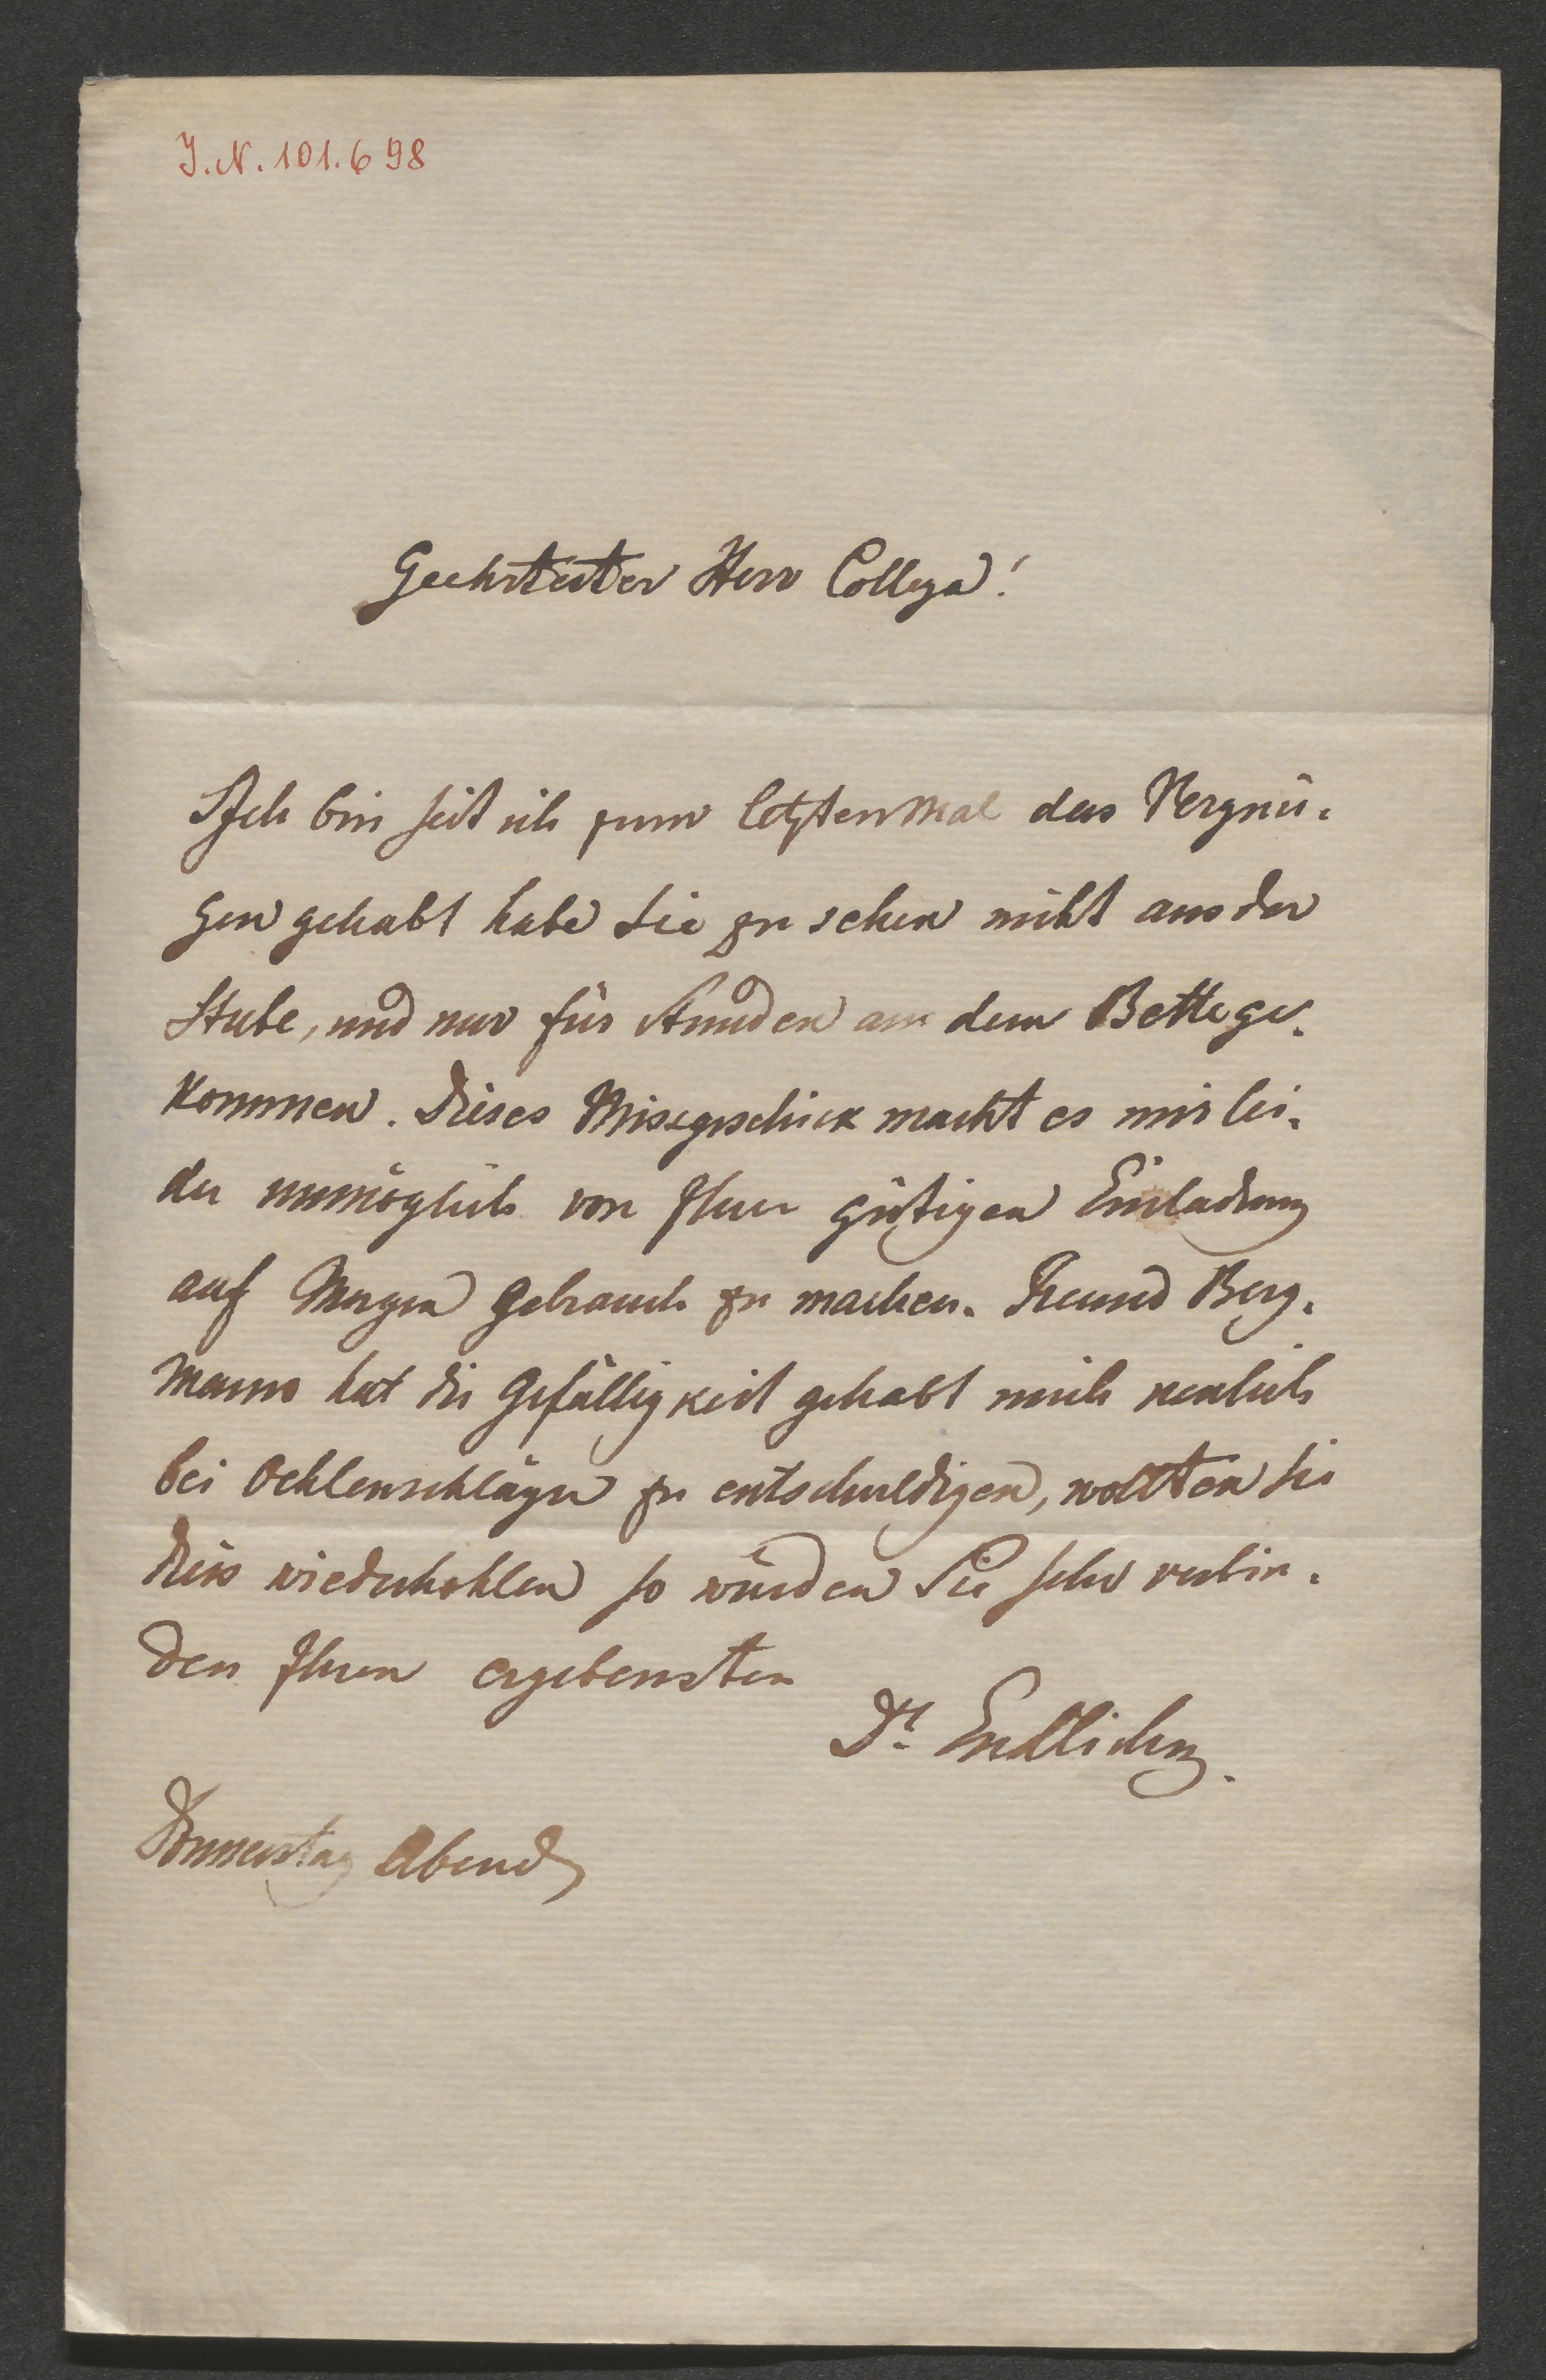 J. N. 101.698
Geehrtester Herr Collega!
Ich bin seit ich zum letztenmal das Vergnü-
gen gehabt habe Sie zu sehen nicht aus der
Stube, und nur für Stunden aus dem Bette ge-
kommen. Dieses Missgeschick macht es mir lei-
der unmöglich von Ihrer gütigen Einladung
auf Morgen Gebrauch zu machen. Freund Berg-
mann hat die Gefälligkeit gehabt mich neulich
bei Oehlenschläger zu entschuldigen, wollten Sie
dies wiederhohlen so würden Sie sehr verbin-
den Ihren ergebensten
Dr. Endlicher.
Donnerstag Abend